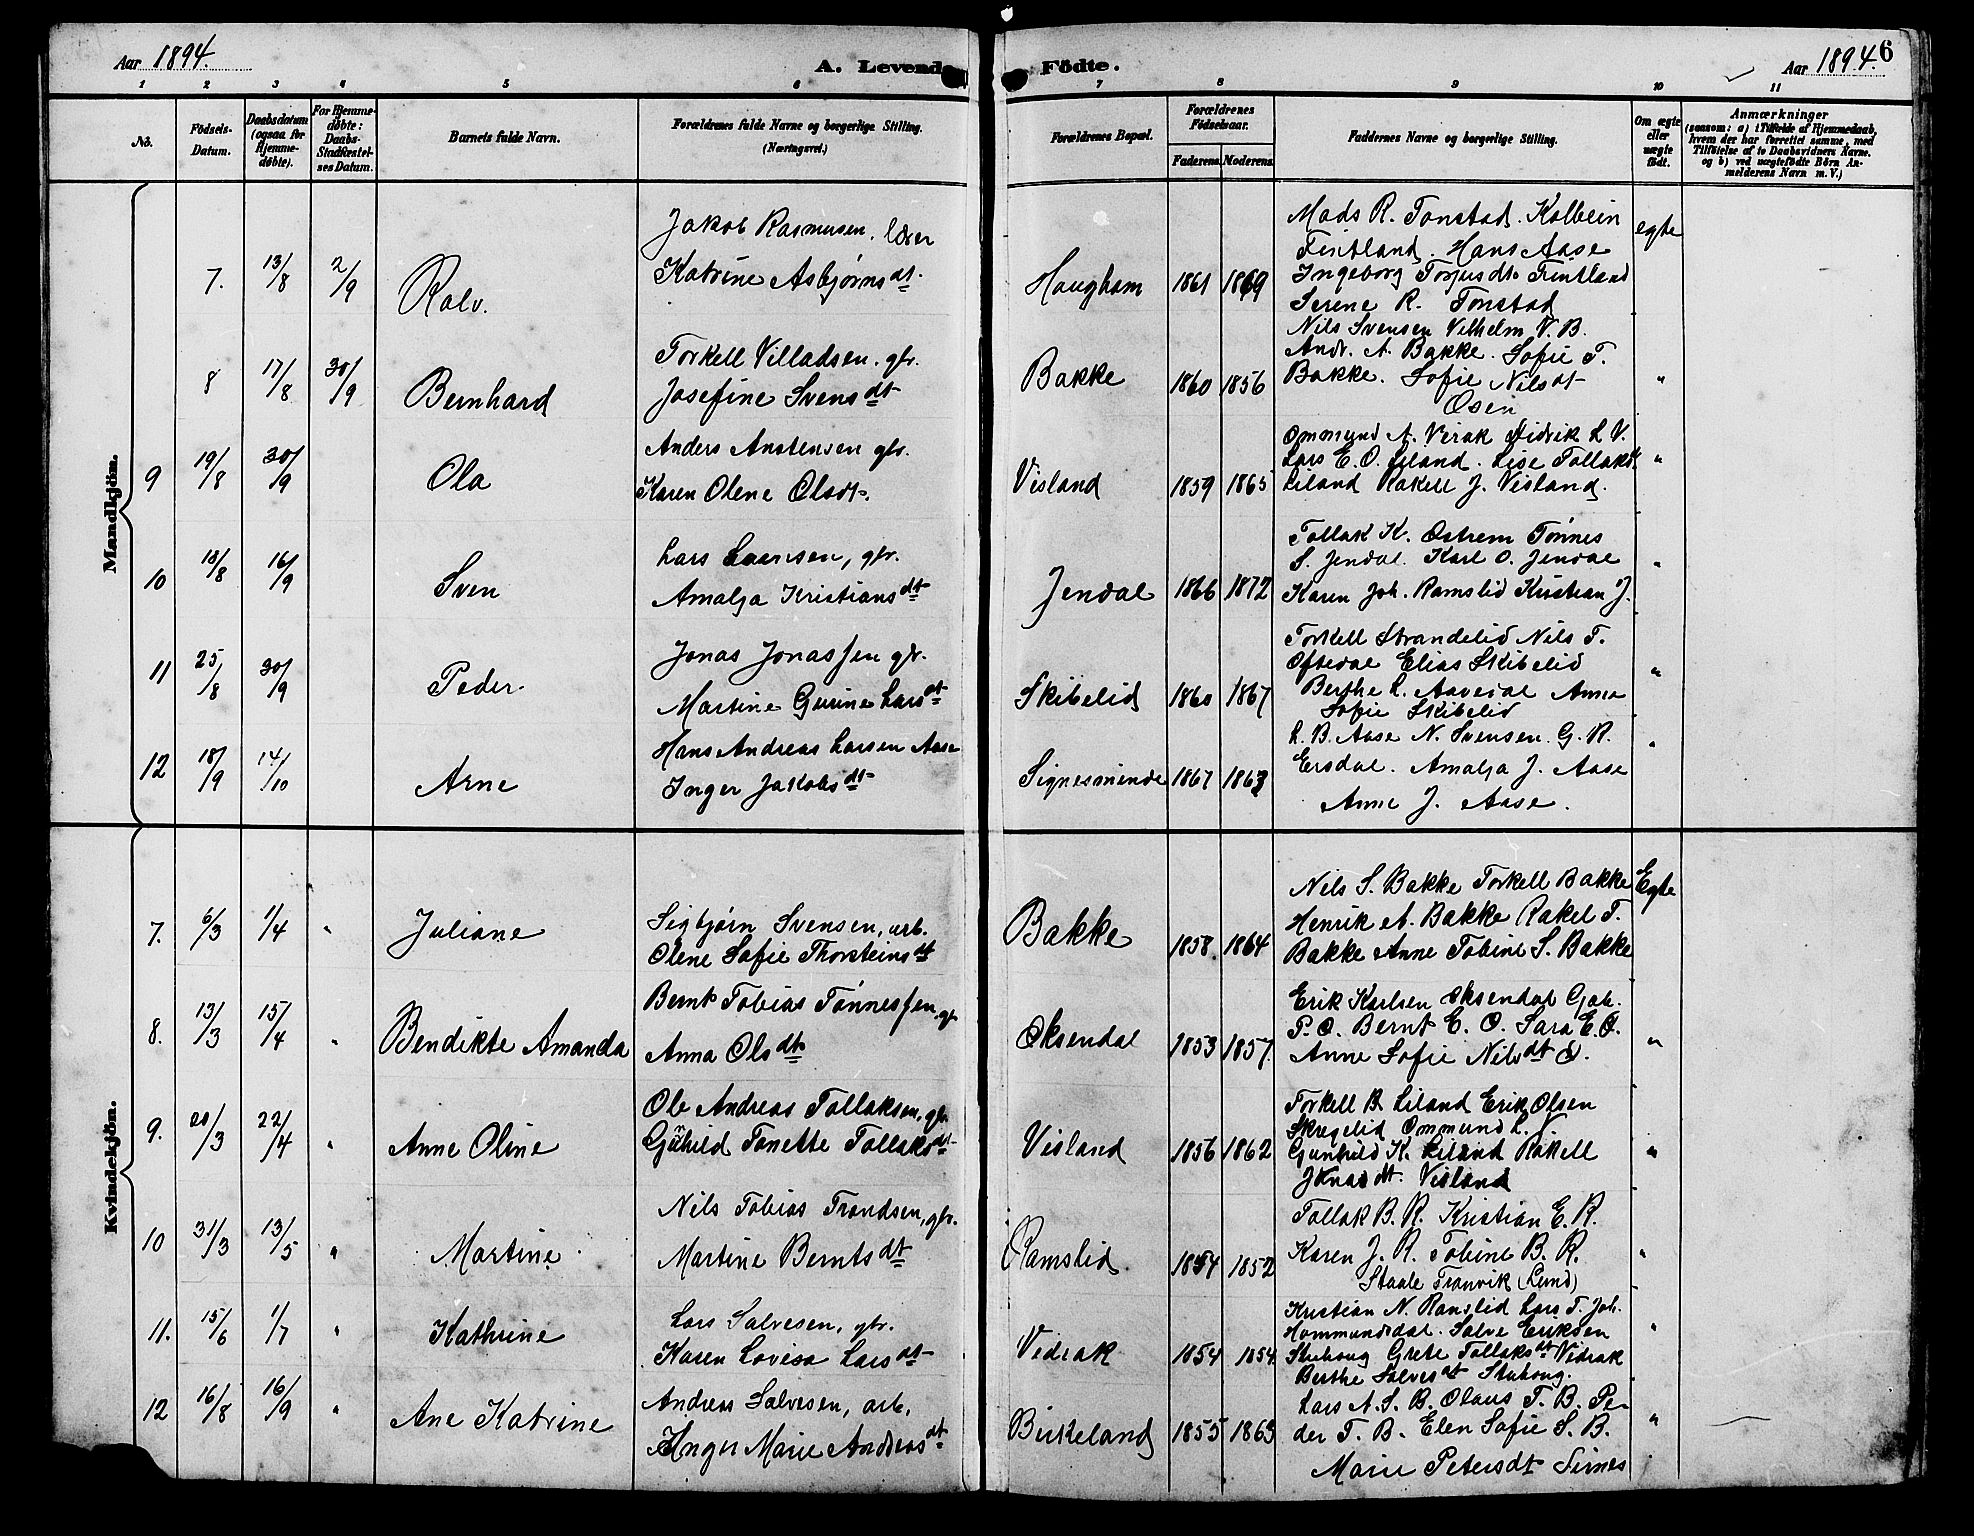 Aar 1894.
A. Levende Födte.
6
Aar 1894.
1 2 3 4 5 6 7 8 9 10 11
No.
Födsels-Datum.
Daabsdatum (ogsaa for Hjemme-döbte).
For Hjemme-döbte: Daabs-Stadfæstel-ses Datum.
Barnets fulde Navn.
Forældrenes fulde Navne og borgerlige Stilling.
(Næringsvei.)
Forældrenes Bopæl.
Forældrenes Födselsaar.
Faderens. Moderens.
Faddernes Navne og borgerlige Stilling.
Om ægte eller uægte födt.
Anmærkninger
(saasom: a) i Tilfælde af Hjemmedaab,
hvem der har forrettet samme, med
Tilföielse af to Daabsvidners Navne.
og b) ved uægtefödte Börn An-
melderens Navn m. V.)
Mandkjön.
7. 13/8 2/9 Ralv.
Jakob Rasmusen. lærer
Katrine Asbjørnsdt.
Haugham 1861 1869
Mads R. Tonstad. Kolbein
Fintland. Hans Aase
Ingeborg Torjusdt. Fintland
Serene R. Tonstad
egte
8 17/8 30/9 Bernhard
Torkell Villadsen. gbr.
Josefine Svensdt
Bakke 1860 1856
Nils Svensen Vilhelm V. B.
Andr. A. Bakke. Sofie T.
Bakke. Sofie Nilsdt
Osen
"
9 19/8 30/9 Ola
Anders Anstensen gbr.
Karen Olene Olsdt.
Visland 1859 1865
Ommund A. Virak Didrik L V.
Lars E. O. Liland. Lise Tollaksd.
Liland Rakell J. Visland.
"
10 18/8 16/9 Sven
Lars Larsen, gbr.
Amalja Kristiansdt
Jendal 1866 1872
Tollak K. Østrem Tønnes
S. Jendal. Karl O. Jendal
Karen Joh. Ramslid Kristian J.
"
11 25/8 30/9 Peder.
Jonas Jonassen gbr.
Martine Gurine Larsdt
Skibelid 1860 1867
Torkell Strandelid Nils T.
Oftedal Elias Skibelid
Berthe L. Aavedal Anna
Sofie Skibelid
"
12 18/9 14/10 Arne
Hans Andreas Larsen Aase
Inger Jakobsdt
Signesminde 1867 1863
L. B. Aase N. Svensen. G. R.
Ersdal. Amalja J. Aase
Anne J. Aase.
"
Kvindekjön.
7. 6/3 1/4 " Juliane
Sigbjørn Svensen, arb.
Olene Sofie Thorsteinsdt
Bakke 1858. 1864
Nils S. Bakke Torkell Bakke
Henrik A. Bakke Rakel T.
Bakke Anne Tobine S. Bakke
Egte
8. 13/3 15/4 " Bendikte Amanda
Bernt Tobias Tønnessen, gbr
Anna Olsdt
Øksendal 1853 1857.
Erik Karlsen Øksendal Gab.
P. O. Bernt E. O. Sara E. O.
Anne Sofie Nilsdt O.
"
9. 20/3 22/4 " Anne Oline
Ole Andreas Tollaksen, gbr
Gunhild Tonette Tollaksdt
Visland 1856 1862
Torkell B. Liland Erik Olsen
Skregelid Ommund L. V.
Gunhild K. Liland Rakell
Jonasdt. Visland
"
10 31/3 13/5 " Martine
Nils Tobias Trondsen, gbr.
Martine Berntsdt
Ramslid. 1854 1852
Tollak B. R. Kristian E. R.
Karen J. R. Tobine B. R.
Staale Tranvik (Lund)
"
11. 15/6 1/7 " Kathrine
Lars Salvesen, gbr.
Karen Lovisa Larsdt
Vidrak 1854 1854
Kristian N. Ramslid Lars T. Joh.
Hammundsdal. Salve Eriksen
Stuhoug Grete Tollaksdt Vidrak
Berthe Salvesdt Stuhoug.
"
12 16/8 16/9 " Ane Katrine
Andreas Salvesen, arb.
Inger Marie Andreasdt
Birkeland 1855 1863
Lars A. S. B. Olaus T. B. Pe-
der T. B. Elen Sofie S. B.
Marie Petersdt Sirnes
"